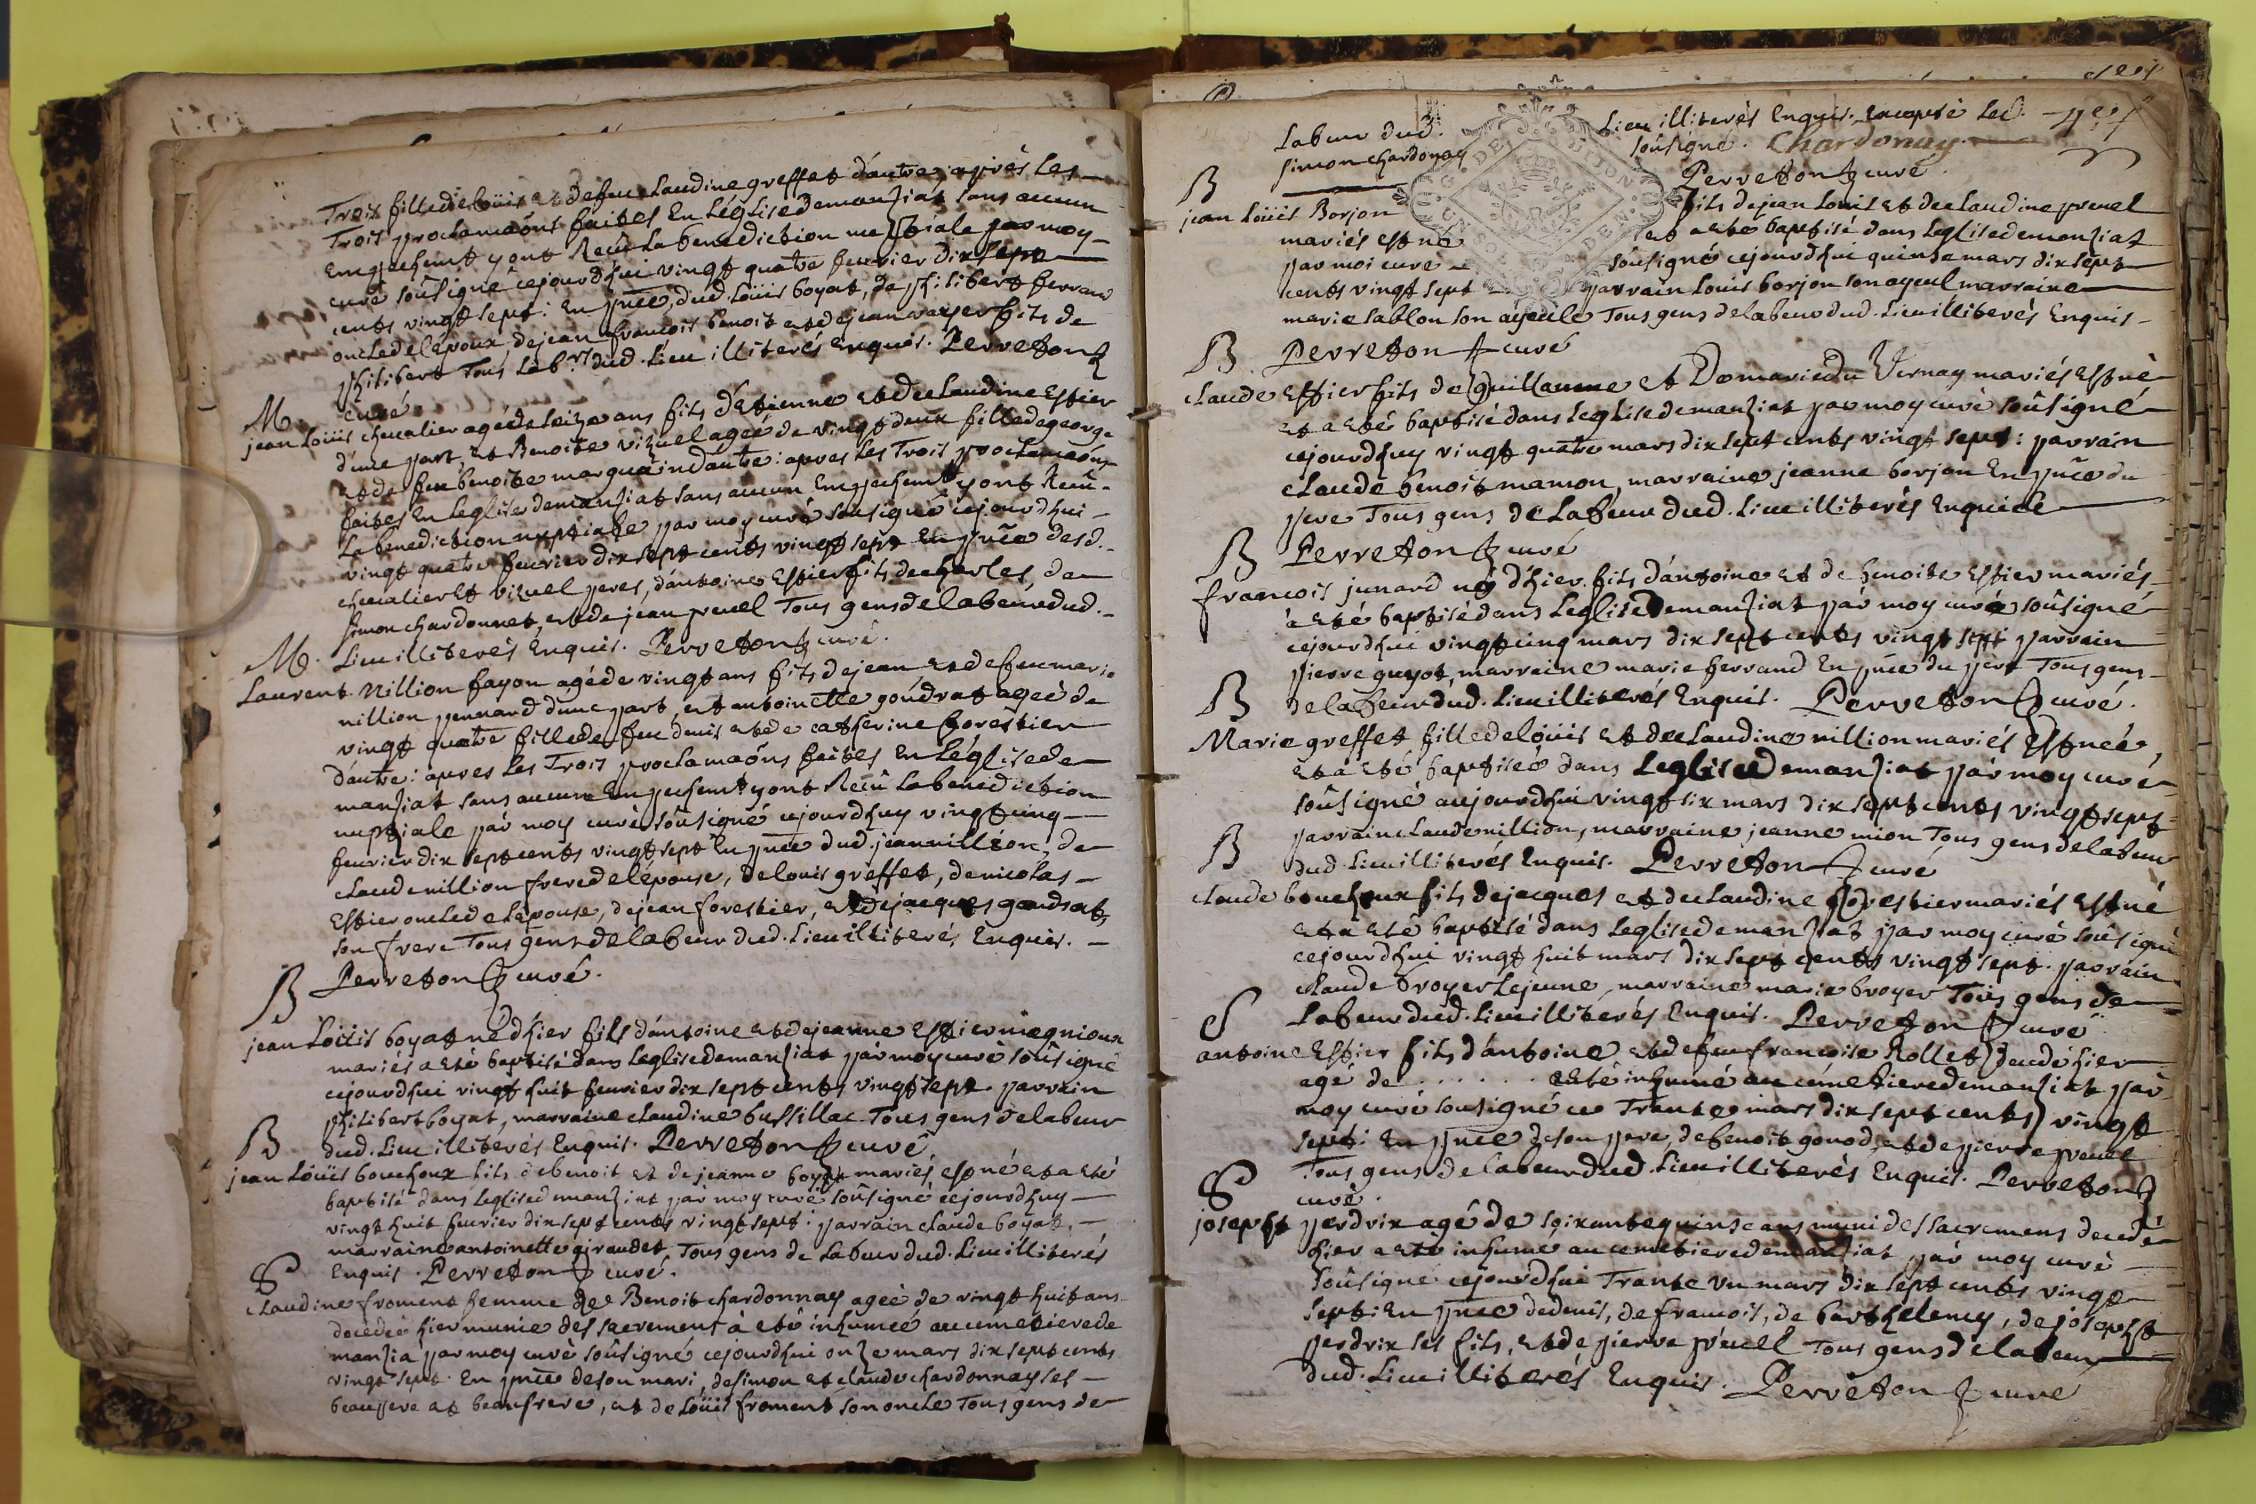 Trois fille de loüis et defeu Laudine greffet d'autre; aprés les
Trois proclamaôns faites En Léglise demanziat sans aucun
Empechemt y ont Recû La benediction nuptiale par moy
curé soûsigné cejourdhui vingt quatre feuvrier dix sept
cents vingt sept: En pnce, dud. Loüis boyat, de philibert ferrand
oncle de lepoux, dejean françois benoit et dejean varjer fils de
philibert Tous Lab.rs dud. Lieu illiterés Enquis. Perreton
curé
M.
jean Loüis chevalier agé de seize ans fils d'Etienne et declaudine Estier
d'une part, et Benoite vizuel ageé de vingt deux fille degeorge
et de feu benoite marguin d'autre: apres les Trois proclamaôns
faites En Leglise demanziat sans aucun Empechemt y ont Recû
La benediction nuptiale par moy curé soûsigné cejourdhui
vingt quatre feuvrier dix sept cents vingt sept En pnce desd.
chevalier et vizuel peres, d'antoine Estier fils decharles, de
simon chardonnet, et de jean pruel Tous gens de labeur dud.
Lieu illiterés Enquis. Perreton curé.
M.
Laurent Nillion fayon agé de vingt ans fils dejean et de feu marie
nillion pennard d'une part, et antoinette goudrat ageé de
vingt quatre fille de feu denis et de catherine forestier
d'autre: apres les Trois proclamaôns faites En Léglise de
manziat sans aucun Empechemt y ont Recû La benediction
nuptiale par moy curé soûsigné cejourdhuy vingt cinq
feuvrier dix sept cents vingt sept En pnce dud. jean nillion, de
claude nillion frere de lepouse, de louis greffet, de nicolas
Estier oncle de Lépouse, dejean forestier, et de jacques goudrat
son frere Tous gens de labeur dud. Lieu illiterés Enquis.
Perreton curé.
B
jean Loüis boyat né d'hier fils d'antoine et dejeanne Estier
mariés a eté baptisé dans Leglise demanziat par moy curé soûsigné
cejourdhui vingt huit feuvrier dix sept cents vingt sept. parrain
philibert boyat, marraine claudine bussillac Tous gens de labeur
dud. Lieu illiterés Enquis. Perreton curé
B
jean Loüis bouchoux fils de benoit et de jeanne boyat mariés, est né et a eté
baptisé dans Leglise demanziat par moy curé soûsigné cejourdhuy
vingt huit feuvrier dix sept cents vingt sept: parrain claude boyat,
marraine antoinette giraudet, Tous gens de Labeur dud. Lieu illiterés
Enquis. Perreton curé.
S
Claudine froment femme de Benoit chardonnay ageé de vingt huit ans
decedeé hier munie des sacremens à eté inhumeé au cemetiere de
manzia par moy curé soûsigné cejourdhui onze mars dix sept cents
vingt sept. En pnce de son mari, de simon et claude chardonnay ses
beaupere et beaufrere, et de Loüis froment son oncle Tous gens de
Labeur dud. Lieu illiterés Enquis. Excepté Led.
simon chardonay soûsigné. Chardonay.
Perreton curé
B
jean Loüis Borjon fils dejean Louis et declaudine pruel
mariés est né et a eté baptisé dans Leglise demanziat
par moi curé soûsigné cejourdhui quinze mars dix sept
cents vingt sept parrain Louis borjon son ayeul marraine
marie sablon son ayeule Tous gens de labeur dud. Lieu illiterés Enquis
Perreton curé
B
claude Estier fils de Guillaume et De marie du Vernay mariés Est né
et a eté baptisé dans Leglise demanziat par moy curé soûsigné
cejourdhuy vingt quatre mars dix sept cents vingt sept: parrain
claude benoit mamon, marraine jeanne borjon En pnce du
pere Tous gens de Labeur dud. Lieu illiterés Enquis
Perreton curé
B
francois junard né d'hier fils d'antoine et de benoite Estier mariés
à eté baptisé dans Leglise Demanziat par moy curé soûsigné
cejourdhui vingt cinq mars dix sept cents vingt sept parrain
pierre guyot, marraine marie ferrand En pnce du pere Tous gens
de labeur dud. Lieu illiterés Enquis. Perreton curé.
B
Marie greffet fille de loüis et declaudine nillion mariés Est neé,
et a eté baptiseé dans Leglise Demanziat par moy curé
soûsigné aujourdhui vingt six mars dix sept cents vingt sept
parrain claude nillion, marraine jeanne mion Tous gens de labeur
dud. Lieu illiterés Enquis. Perreton curé
B
claude bouchoux fils dejacques et declaudine forestier mariés Est né
et a eté baptisé dans Leglise demanziat par moy curé soûsigné
cejourdhui vingt huit mars dix sept cents vingt sept. parrain
claude broyer Lejeune, marraine marie broyer Tous gens de
Labeur dud. Lieu illiterés Enquis. Perreton curé
S
antoine Estier fils d'antoine, et de feu francoise Rollet decedé hier
agé de . . . . . . . a eté inhumé au cémetiere demanziat par
moy curé soûsigné ce Trante mars dix sept cents vingt
sept: En pnce de son pere, de benoit gonod, et de pierre pruel
Tous gens de labeur dud. Lieu illiterés Enquis. Perreton
curé.
S
joseph perdrix agé de soixante quinze ans muni des sacremens decedé
hier a eté inhumé au cemetiere demanziat par moy curé
soûsigné cejourdhui Trante un mars dix sept cents vingt
sept: En pnce dedenis, de francois, de barthelemy, de joseph
perdrix ses fils, et de pierre pruell Tous gens de labeur
dud. Lieu illiterés Enquis. Perreton curé